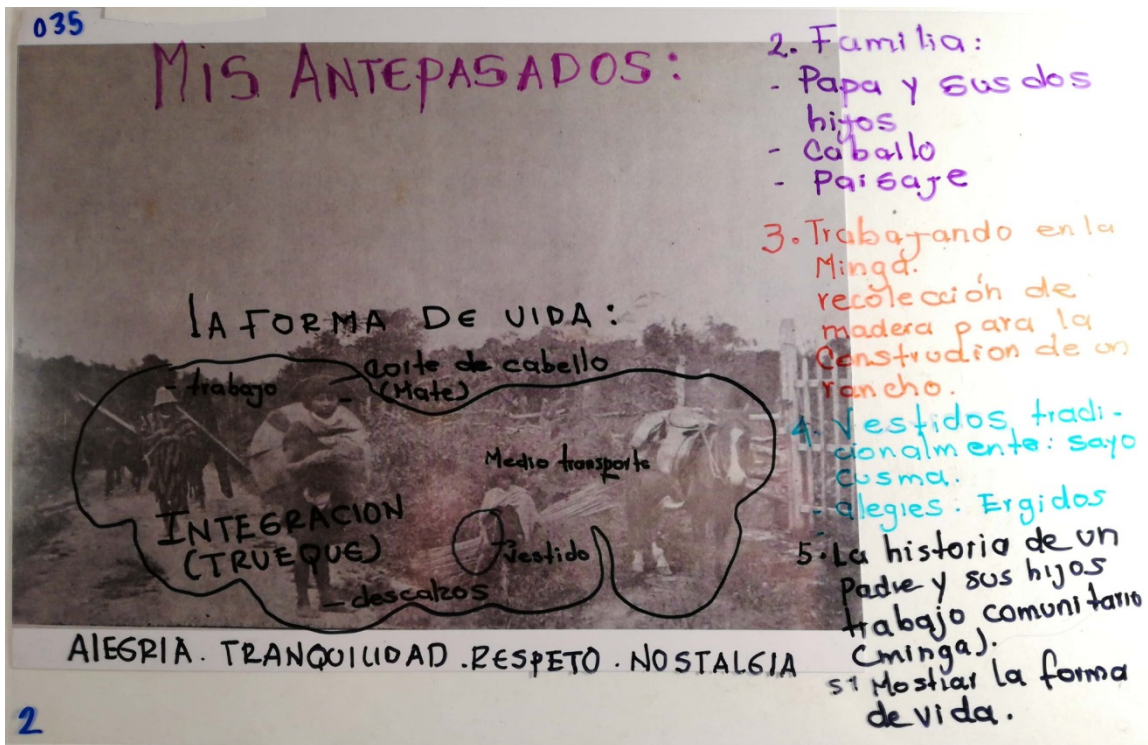 035
MIS ANTEPASADOS:
LA FORMA DE VIDA:
- trabajo
corte de cabello
(Mate)
Medio transporte
INTEGRACION
(TRUEQUE)
vestido
- descalzos
ALEGRIA. TRANQUILIDAD. RESPETO. NOSTALGIA
2
2. Familia:
- Papa y sus dos
hijos
- Caballo
- Paisaje
3. Trabajando en la
Minga.
recolección de
madera para la
Construcion de un
rancho.
4. Vestidos tradi-
cionalmente: sayo
cusma.
- alegres. Ergidos
5. La historia de un
Padre y sus hijos
trabajo comunitario
(minga).
Si Mostrar la forma
de vida.